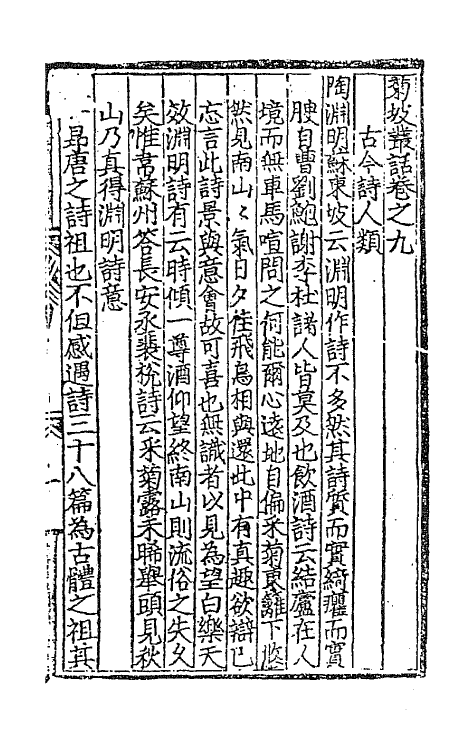 菊坡叢話卷之九
古今詩人類
陶淵明蘇東坡云淵明作詩不多然其詩質而實綺癯而實
腴自曹劉鮑謝李杜諸人皆莫及也飲酒詩云結廬在人
境而無車馬喧問之何能爾心遠地自偏采菊東籬下悠
然見南山〻氣日夕佳飛鳥相與還此中有真趣欲辯已
忘言此詩景與意會故可喜也無識者以見為望白樂天
效淵明詩有云時傾一尊酒仰望終南山則流俗之失久
矣惟韋蘇州答長安丞裴稅詩云采菊露未晞舉頭見秋
山乃真得淵明詩意
昴唐之詩祖也不但感遇詩三十八篇為古體之祖其